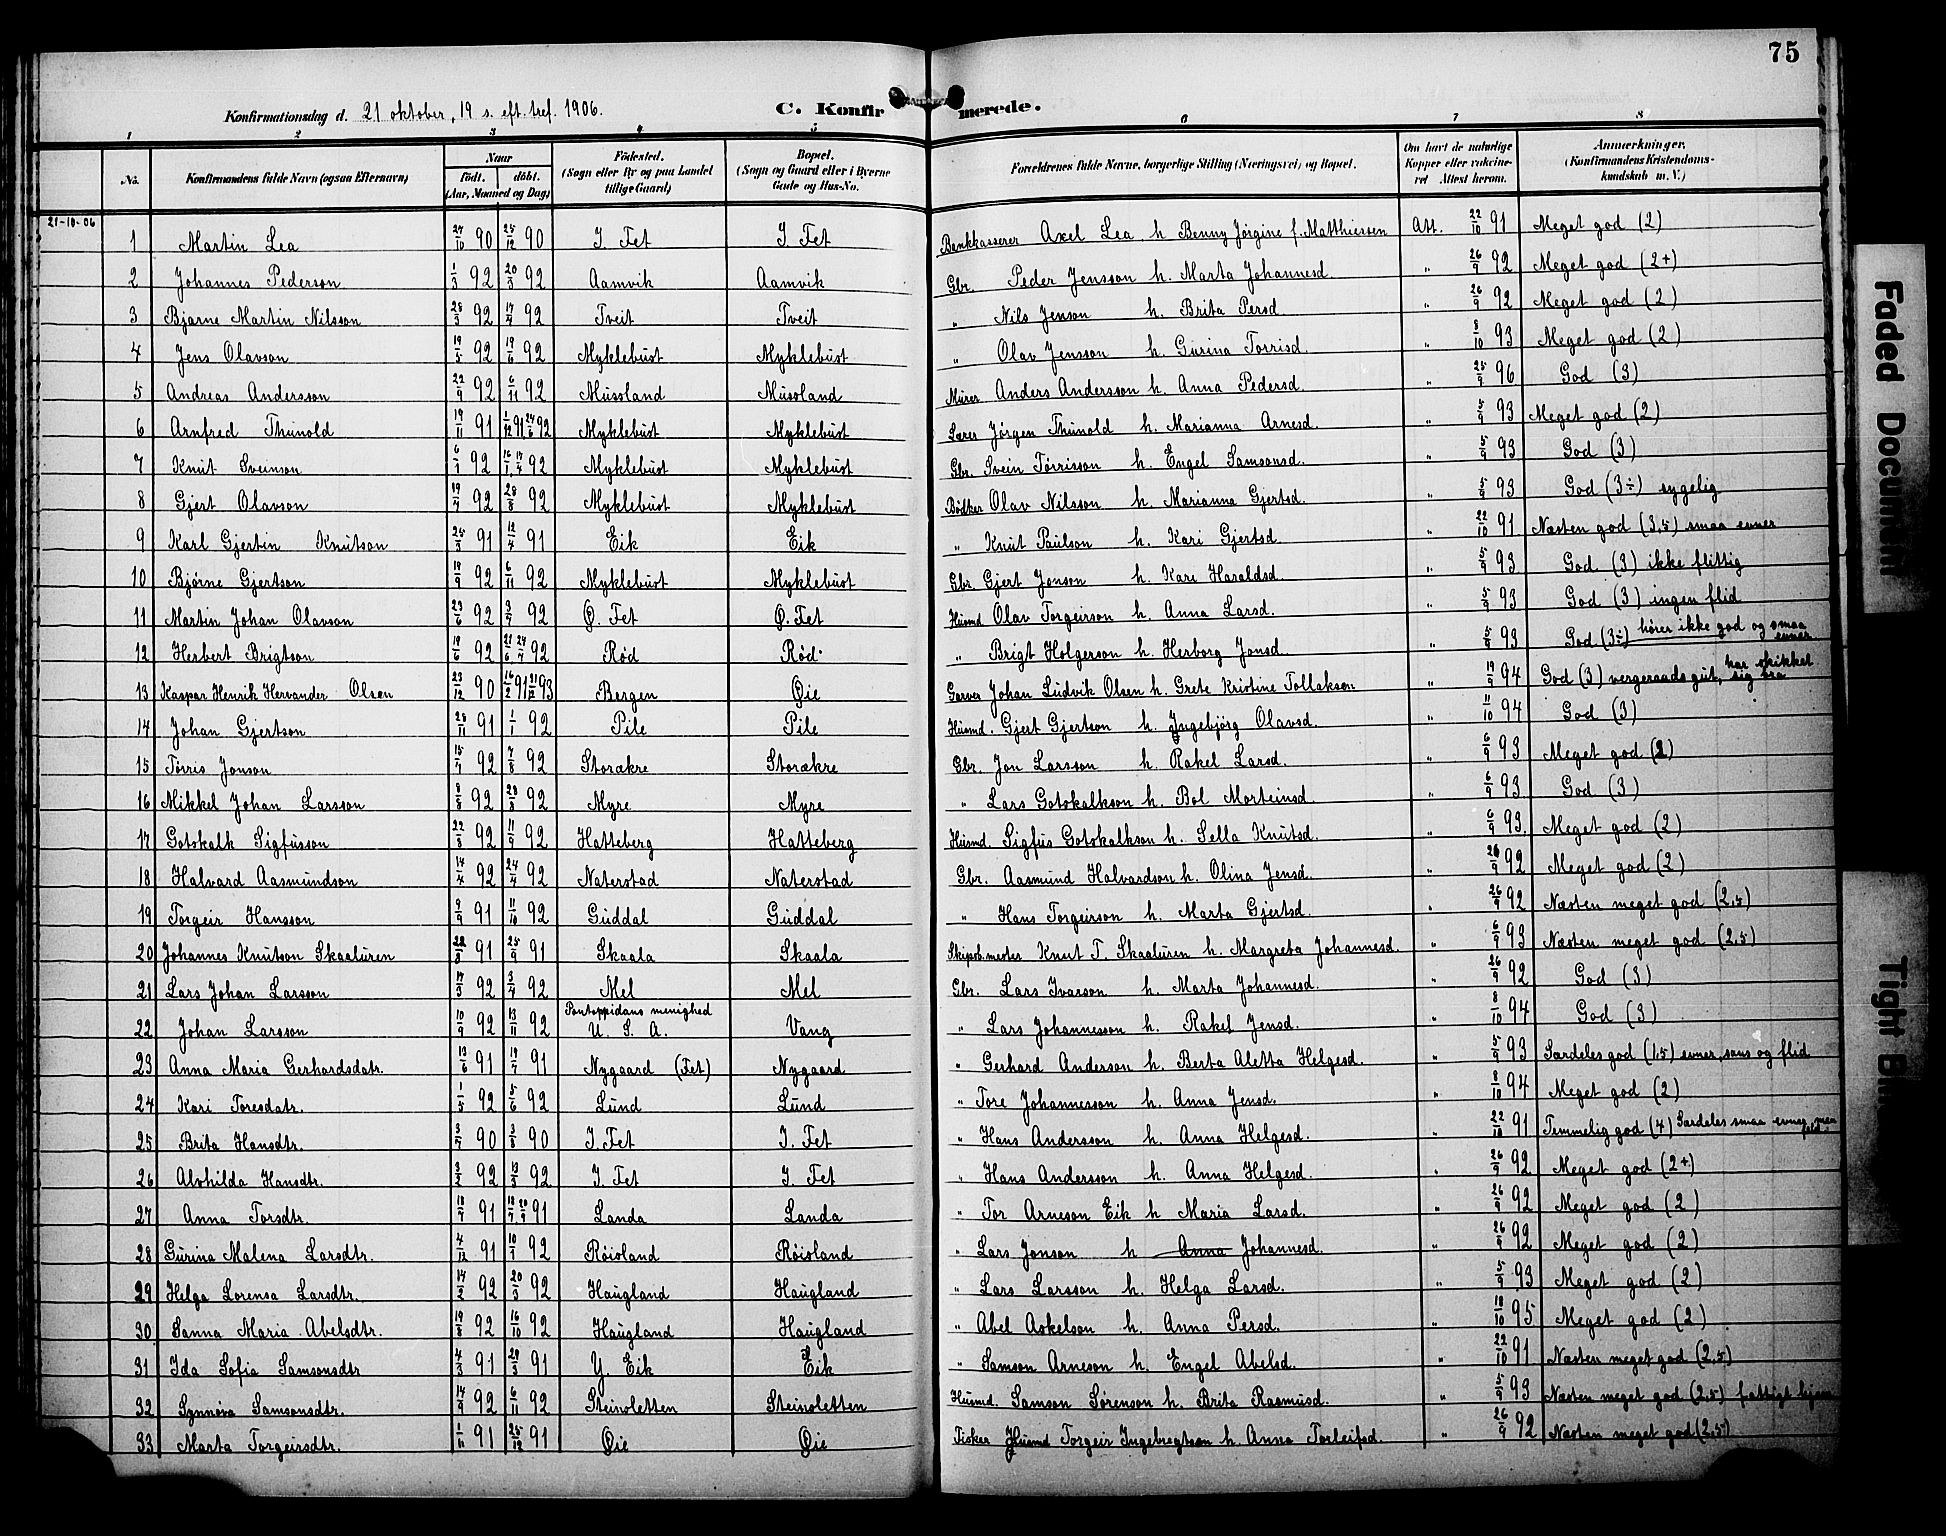 75
Konfirmationsdag d. 21 oktober, 19 s. eft. tref. 1906. C. Konfirmerede.
1 2 3 4 5 6 7 8
No. Konfirmandens fulde Navn (ogsaa Efternavn) Naar födt. döbt. (Aar, Maaned og Dag) Födested. (Sogn eller By og paa Landet tillige Gaard) Bopæl. (Sogn og Gaard eller i Byerne Gade og Hus-No. Forældrenes fulde Navne, borgerlige Stilling (Næringsvei) og Bopæl. Om havt de naturlige Kopper eller vakcineret Attest herom. Anmerkninger. (Konfirmandens Kristendomskundskab m. V.)
21-10-06
1 Martin Lea 24/10 90 25/12 90 I. Fet I. Fet Bankkasserer Axel Lea h Benny Jørgine f. Matthiessen Att. 22/10 91 Meget god (2)
2 Johannes Pederson 1/3 92 20/3 92 Aamvik Aamvik Gbr. Peder Jensson h. Marta Johannesd. " 26/9 92 Meget god (2+)
3 Bjarne Martin Nilsson 28/3 92 17/4 92 Tveit Tveit " Nils Jenson h. Brita Persd " 26/9 92 Meget god (2)
4 Jens Olavson 19/5 92 19/6 92 Myklebust Myklebust " Olav Jensson h. Gurina Torrisd. " 8/10 93 Meget god (2)
5 Andreas Andersson 22/9 92 6/11 92 Mussland Mussland Murer Anders Andersson h. Anna Pedersd. " 25/9 96 God (3)
6 Arnfred Thunold 19/11 91 1/12 91 24/6 92 Myklebust Myklebust Lærer Jörgen Thunold h. Marianna Arnesd. " 5/9 93 Meget god (2)
7 Knut Sveinson 6/1 92 17/4 92 Myklebust Myklebust Gbr. Svein Törrisson h. Engel Samsonsd. " 5/9 93 God (3)
8 Gjert Olavson 19/7 92 28/8 92 Myklebust Myklebust Bödker Olav Nilsson h. Marianna Gjertsd. " 5/9 93 God (3÷) sygelig
9 Karl Gjertin Knutson 25/3 91 12/4 91 Eik Eik " Knut Paulson h. Kari Gjertsd. " 22/10 91 Næsten god (3,5) smaa evner
10 Bjørne Gjertson 19/9 92 6/11 92 Myklebust Myklebust Gbr. Gjert Jonson h. Kari Haraldsd. " 5/9 93 God (3) ikke flittig
11 Martin Johan Olavson 23/6 92 3/7 92 Ø. Fet Ø. Fet Husmd Olav Torgeirson h. Anna Larsd. " 5/9 93 God (3) ingen flid
12 Herbert Brigtson 19/6 92 21/6 24/7 92 Rød Rød " Brigt Holgerson h. Herborg Jonsd. " 5/9 93 God (3÷) hører ikke god og smaa evner
13 Kaspar Henrik Hervander Olsen 23/12 90 16/2 91 11/12 93 Bergen Øie Garver Johan Ludvik Olsen h. Grete Kristine Tollakson " 19/9 94 God (3) vergeraadsgut, har skikket sig bra
14 Johan Gjertson 28/11 91 1/1 92 Pile Pile Husmd. Gjert Gjertson h. Ingebjørg Olavsd. " 11/10 94 God (3)
15 Tørris Jonson 15/7 92 7/8 92 Storækre Storækre Gbr. Jon Larsson h. Rakel Larsd. " 6/9 93 Meget god (2)
16 Mikkel Johan Larsson 8/8 92 28/8 92 Myre Myre " Lars Gotskalkson h. Bol Morteinsd. " 6/9 93 God (3)
17 Gotskalk Sigfusson 22/8 92 11/9 92 Hatteberg Hatteberg Husmd. Sigfus Gotskalkson h. Sella Knutsd. " 6/9 93 Meget god (2)
18 Halvard Aasmundson 14/4 92 24/4 92 Naterstad Naterstad Gbr. Aasmund Halvardson h. Olina Jensd. " 26/9 92 Meget god (2)
19 Torgeir Hansson 9/9 91 11/10 92 Guddal Guddal " Hans Torgeirson h. Marta Gjertsd. " 26/9 92 Næsten meget god (2,5)
20 Johannes Knutson Skaaluren 22/8 91 25/9 91 Skaala Skaala Skipsb.mester Knut T. Skaaluren h. Margreta Johannesd. " 6/9 93 Næsten meget god (2,5)
21 Lars Johan Larsson 17/3 92 3/4 92 Mel Mel Gbr. Lars Ivarson h. Marta Johannesd. " 26/9 92 God (3)
22 Johan Larsson 10/9 92 13/11 92 Pontoppidans menighed U. S. A. Vang " Lars Johannesson h. Rakel Jensd. " 8/10 94 God (3)
23 Anna Maria Gerhardsdatr. 13/6 91 19/7 91 Nygaard (Fet) Nygaard " Gerhard Anderson h. Berta Aletta Helgesd. " 5/9 93 Særdeles god (1,5) evner, sans og flid
24 Kari Toresdatr. 1/5 92 5/6 92 Lund Lund " Tore Johannesson h. Anna Jensd. " 8/10 94 Meget god (2)
25 Brita Hansdtr. 3/7 90 3/8 90 I. Fet I. Fet " Hans Andersson h. Anna Helgesd. " 22/10 91 Temmelig god (4) Særdeles smaa evner, men flid.
26 Alvhilda Hansdtr. 3/2 92 13/3 92 I. Fet I. Fet " Hans Andersson h. Anna Helgesd. " 26/9 92 Meget god (2+)
27 Anna Torsdtr. 18/7 91 18/7 20/9 91 Landa Landa " Tor Arneson Eik h Maria Larsd. " 26/9 92 Meget god (2)
28 Gurina Malena Larsdtr. 4/12 91 10/1 92 Røisland Røisland " Lars Jonson h Anna Johannesd. " 26/9 92 Meget god (2)
29 Helga Lorensa Larsdtr. 14/2 92 20/3 92 Haugland Haugland " Lars Larsson h. Helga Larsd. " 5/9 93 Meget god (2)
30 Sanna Maria Abelsdtr. 19/8 92 16/10 92 Haugland Haugland " Abel Askelson h. Anna Persd. " 18/10 95 Meget god (2)
31 Ida Sofia Samsonsdtr 4/3 91 29/3 91 Y. Eik Eik " Samson Arneson h. Engel Abelsd. " 22/10 91 Næsten meget god (2,5)
32 Synnöva Samsonsdtr. 14/9 92 6/11 92 Steinsletten Steinsletten Husmd. Samson Sørenson h. Brita Rasmusd. " 5/9 93 Næsten meget god (2,5) fattigt hjem
33 Marta Torgeirsdtr. 1/11 91 25/12 91 Øie Øie Fisker Husmd Torgeir Ingebregtson h. Anna Torleifsd. " 26/9 92 Næsten meget god (2,5)
Faded Document
Tight Bin